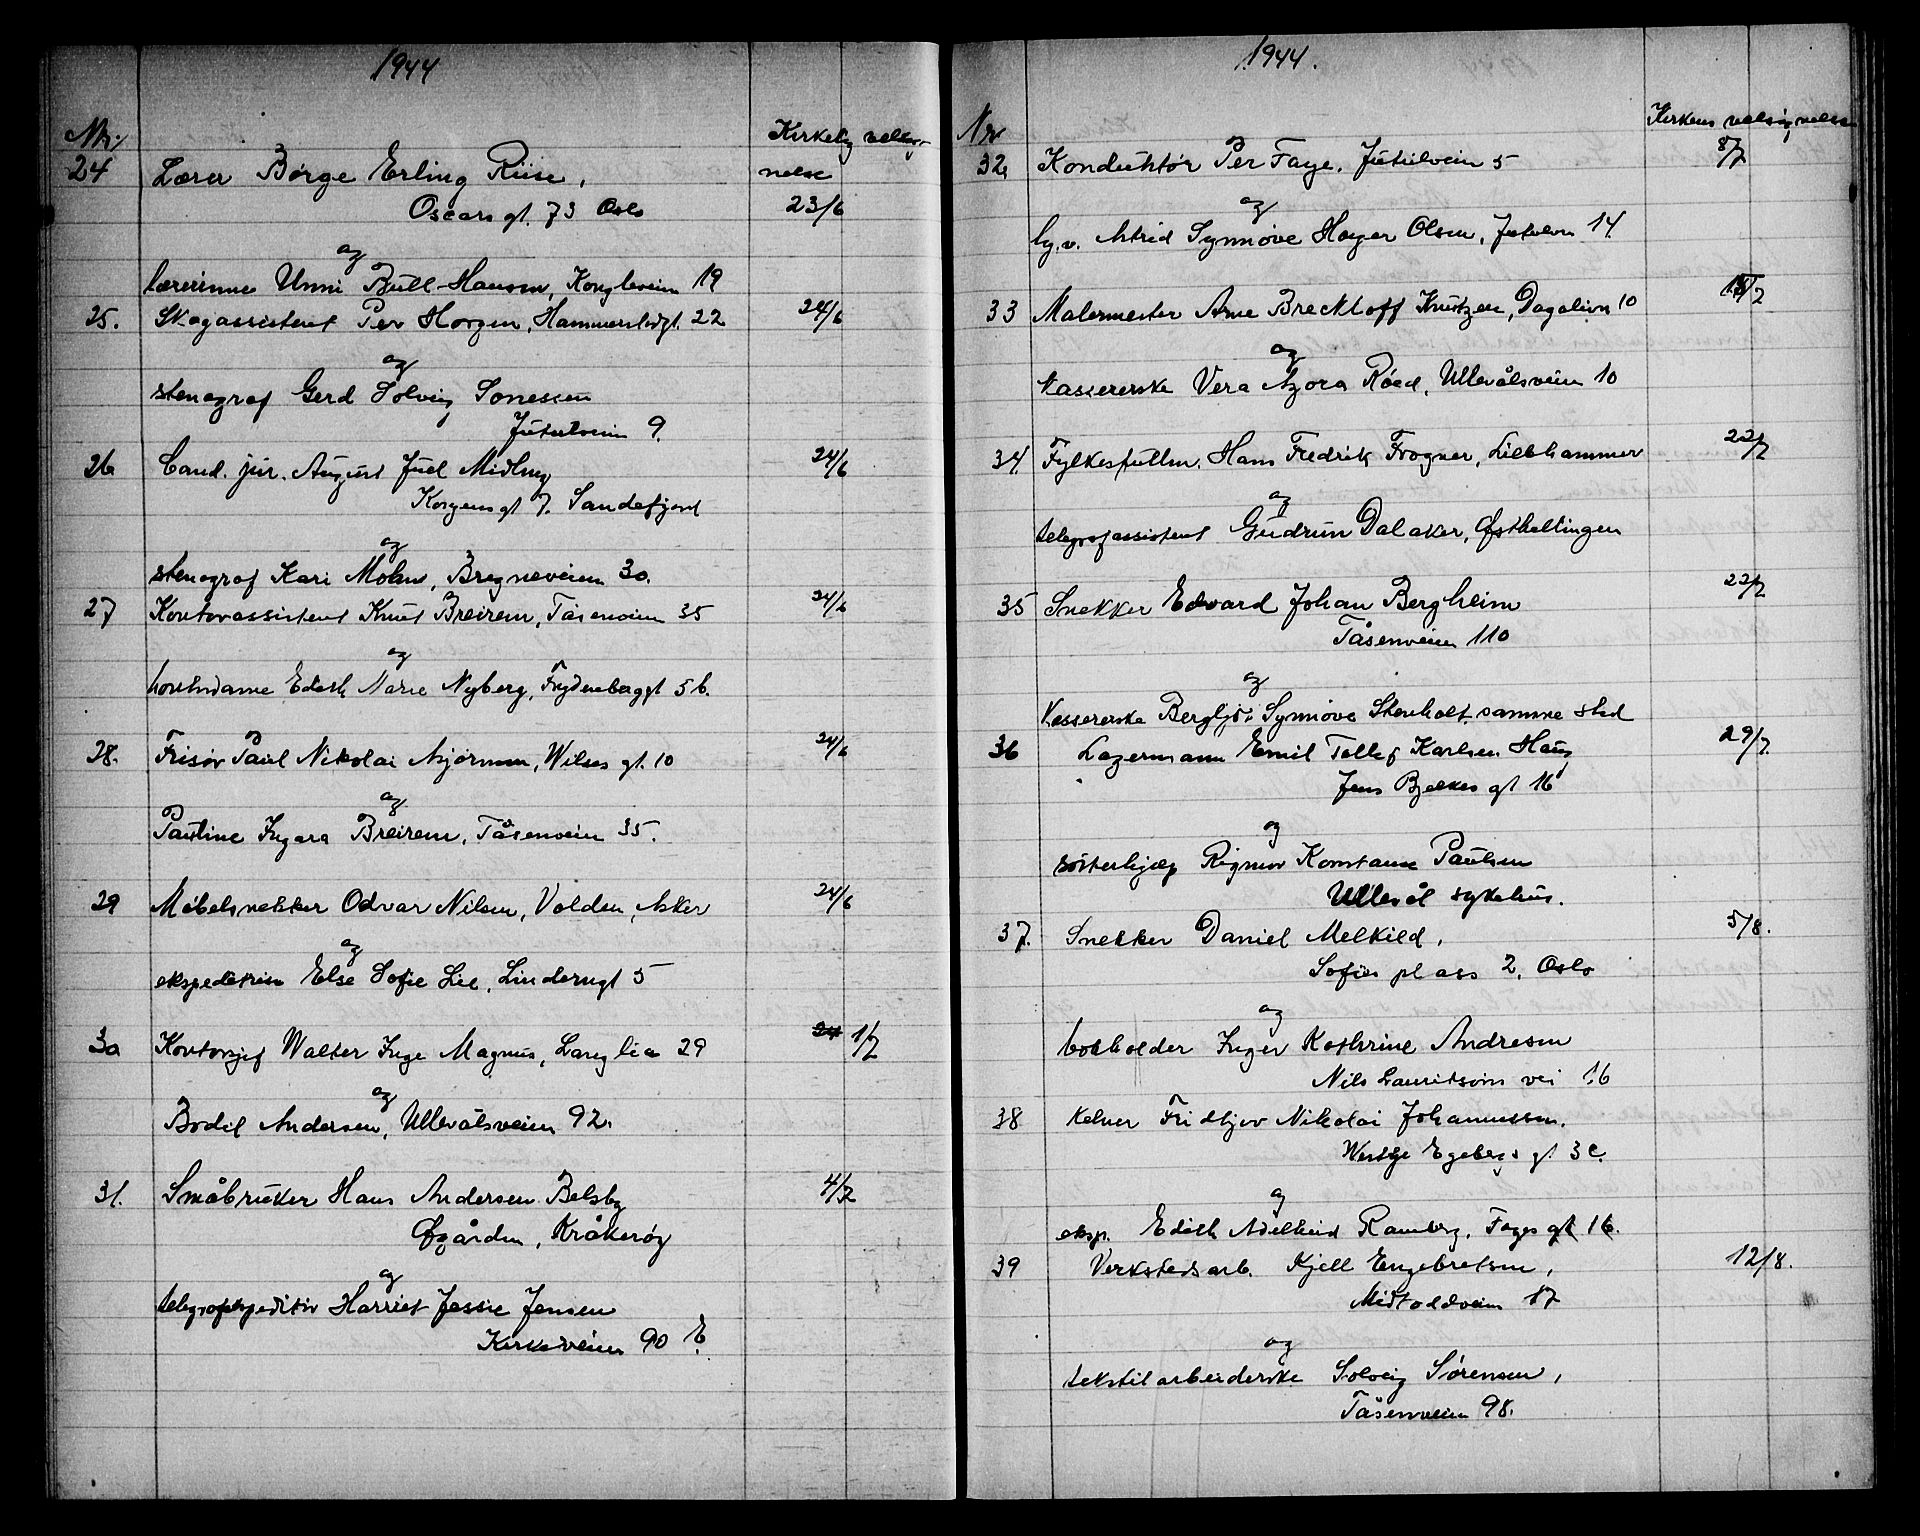 1944
Nr.
Kirkelig velsig-
nelse
24 Lærer Børge Erling Riise, 23/6
Oscars gt. 73 Oslo
og
lærerinne Unni Bull-Hansen, Kongleveien 19
25. Skogassistent Per Horgen, Hammerstadgt. 22 24/6
og
stenograf Gerd Solveig Sonessen
Jutulveien 9.
26 Cand. jur. August Juel 24/6
gt 7. Sandefjord
og
stenograf Kari Mohn, Bregneveien 30.
27 Kontorassistent Knut Breirem, Tåsenveien 35 24/6
og
kontordame Edith Marie Nyberg, Frydenberggt 5 b.
28. Frisør Paul Nikolai Asjørnsen, Wilses gt. 10 24/6
og
Pauline Ingara Breirem, Tåsenveien 35.
29 Møbelsnekker Odvar Nilsen, Volden, Asker 24/6
og
ekspeditrise Else Sofie Lie, Linderngt 5
30 Kontorsjef Walter Inge Magnus, Langlia 29 24 1/7
og
Bodil Andersen, Ullevålsveien 92.
31. Småbruker Hans Andersen Belsby 4/7
Øgården, Kråkerøy
og
telegrafekspeditør Harriet Jessie Jensen
Kirkeveien 90 E.
1944.
Nr
Kirkens velsignelse
32. Konduktør Per Faye, Jutulveien 5 8/7
og
hg.v. Astrid Synnøve Høyer Olsen, Jutulvn 14.
33 Malermester Arne Breckhoff Knutzen, Dagalivn 10 15/7
og
kassererske Vera Azora Røed, Ullevålsveien 10
34 Fylkesfullm. Hans Fredrik Frogner, Lillehammer 22/7
og
telegrafassistent Gudrun Dalaker, Østhellingen
35 Snekker Edvard Johan Bergheim 22/7
Tåsenveien 110
og
Kassererske Bergljot Synnøve Stenholt, samme sted
36 Lagermann Emil Tollef Karlsen Haug 29/7.
Jens Bjelkes gt 16
og
søsterhjelp Rigmor Konstanse Paulsen
Ullevål sykehus.
37. Snekker Daniel Melkild, 5/8.
Sofies plass 2, Oslo
og
bokholder Inger Kathrine Andresen
Nils Lauritsøns vei 16
38 Kelner Fridtjov Nikolai Johannessen.
Westye Egebergs gt 3 c.
og
eksp. Edith Adelheid Ramberg, Fages gt 16.
39 Verkstedsarb. Kjell Engebretsen, 12/8.
Midtoddveien 17
og
tekstilarbeiderske Solveig Sørensen,
Tåsenveien 98.